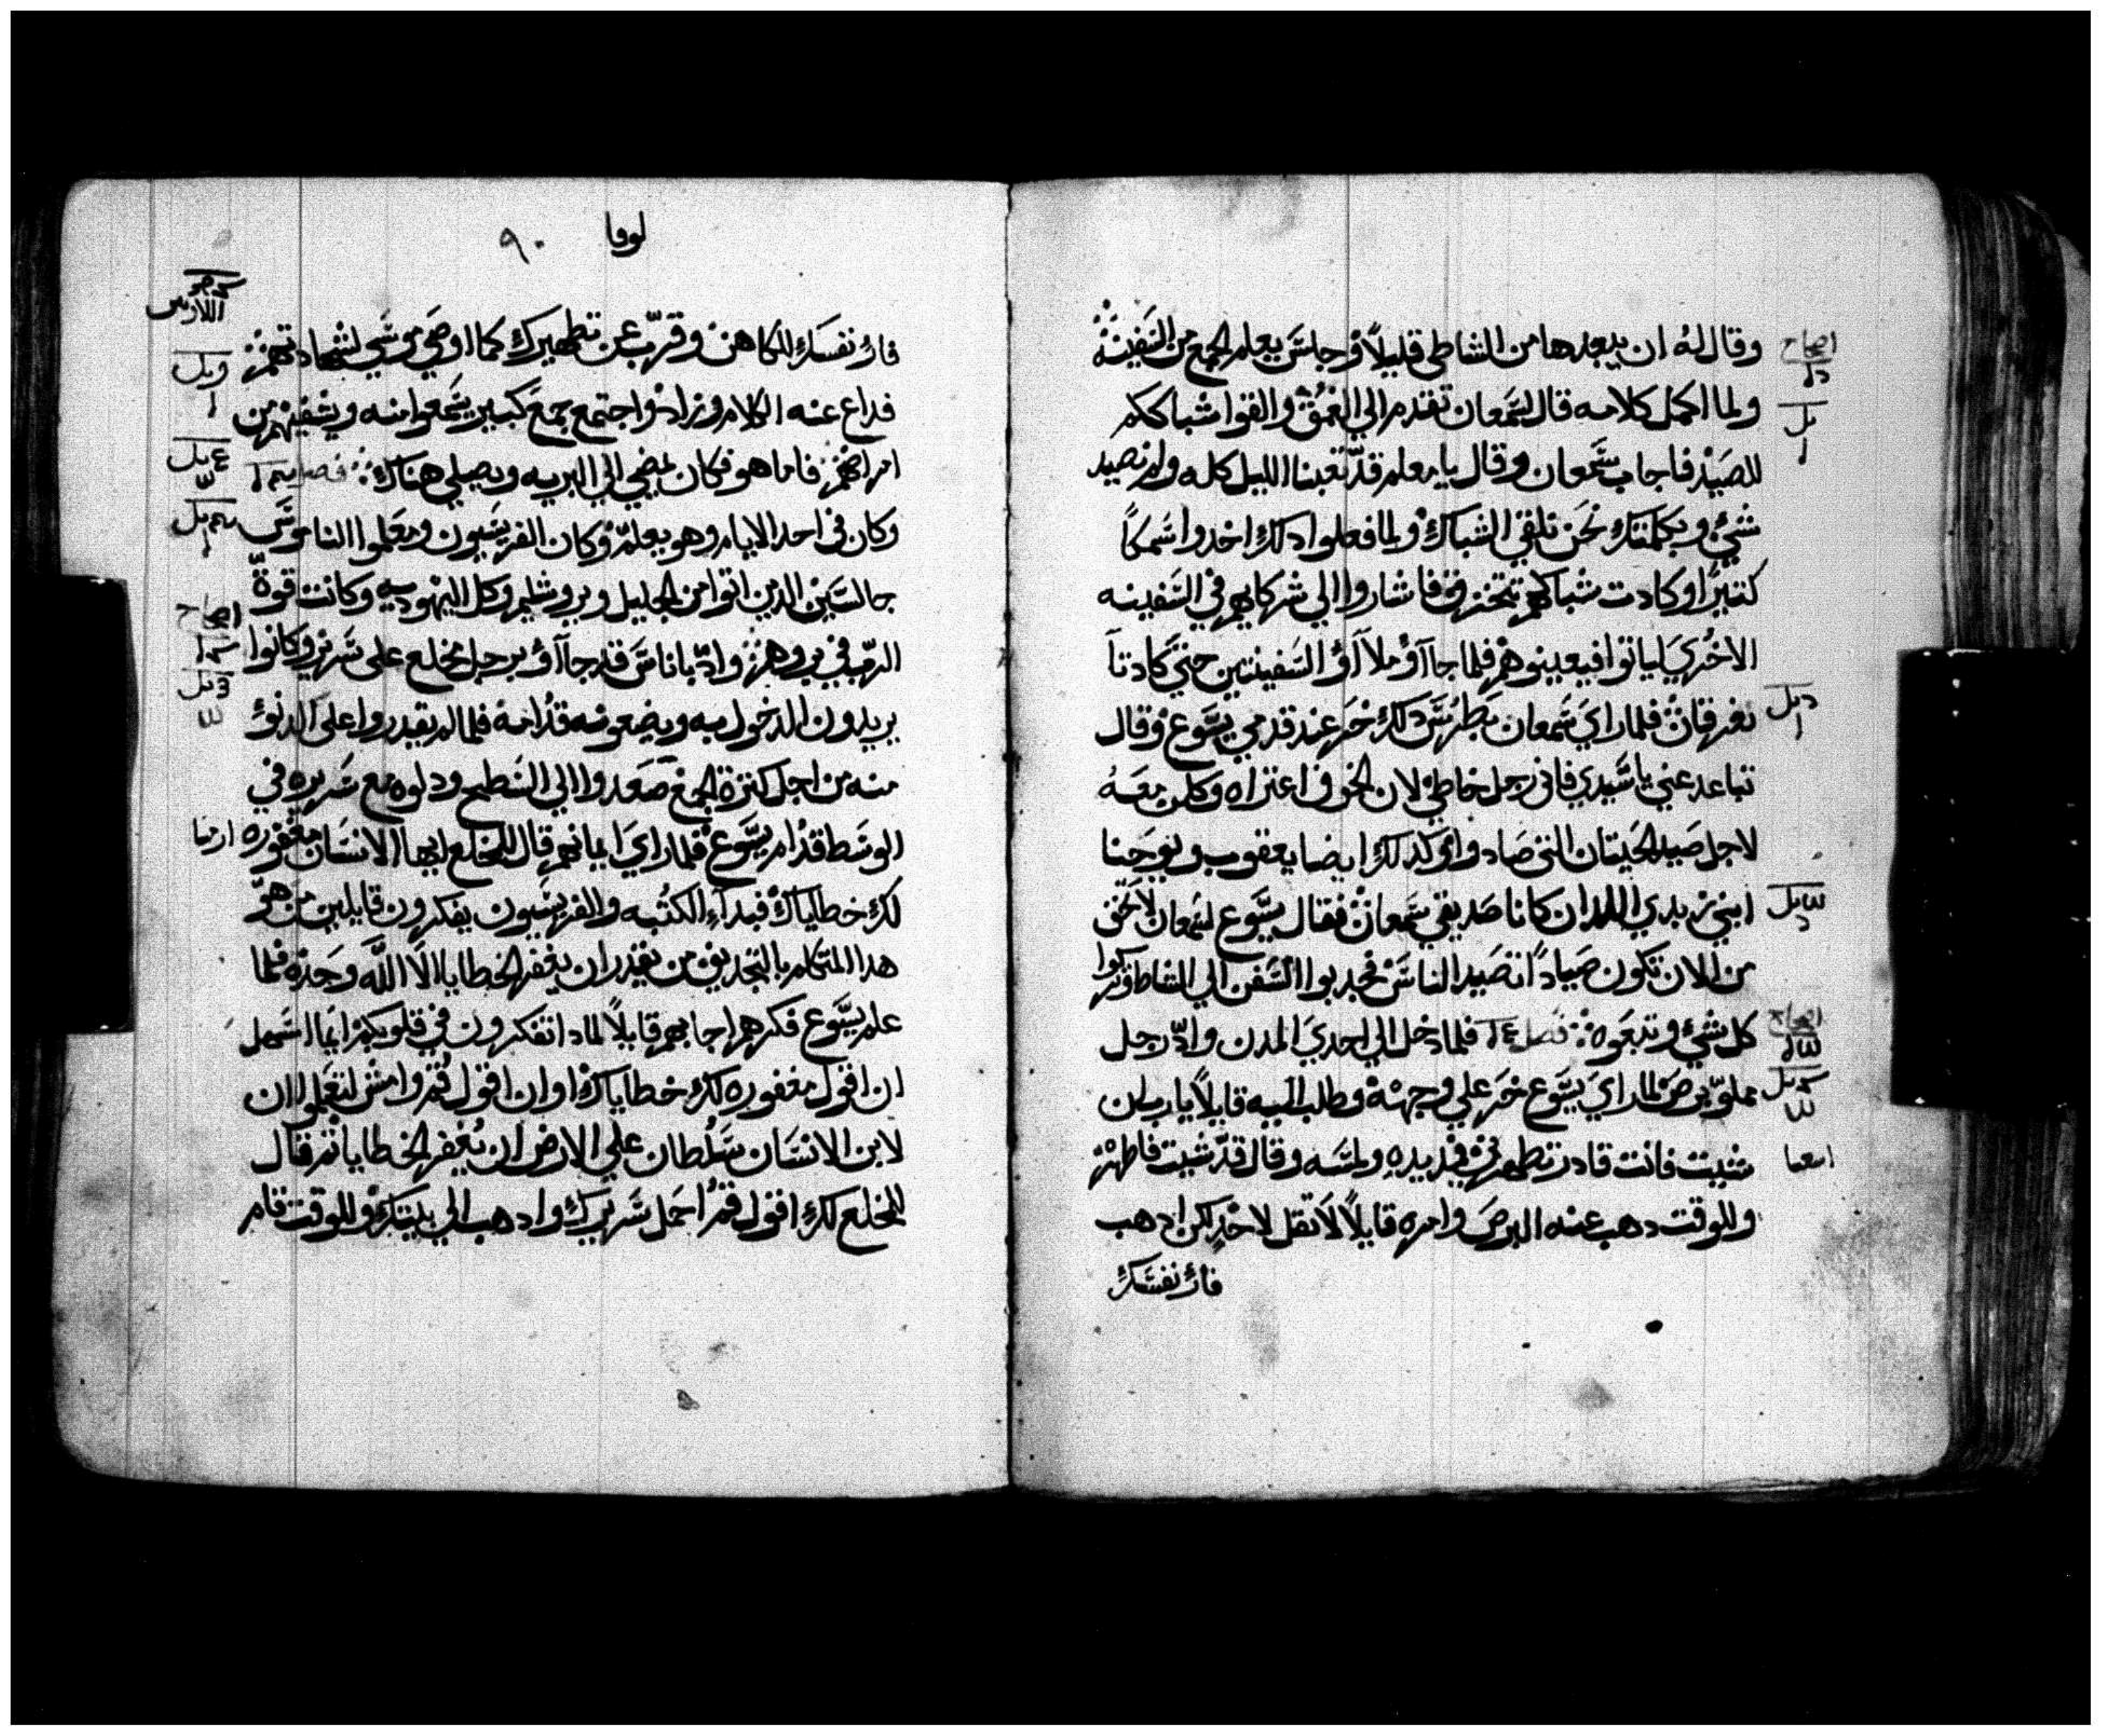 وقال له ان يبعدها من الشاطي قليلاً وجلس يعلم الجمع من السفينه
ولما اكمل كلامه قال لسمعان تقدم الي الغمق والقوا شباككم
للصيد فاجاب سمعان وقال يا معلم قد تعبنا الليل كله ولم نصيد
شئ وبكلمتك نحن نلقي الشباك ولما فعلوا دلك اخدوا سمكاً
كتيرًا وكادت شباكهم تتخزق فاشاروا الي شركايهم في السفينه
الاخري لياتوا فيعينوهم فلما جاآو ملاآو السفينتين حتي كادتا
تغرقان فلما راي سمعان بطرس دلك خر عند قدمي يسوع وقال
تباعد عني يا سيدي فاني رجل خاطي لان الخوف اعتراه وكلمن معه
لاجل صيد الحيتان التي صادوا وكدلك ايضا يعقوب ويوحنا
ابني زبدي اللدان كانا صديقي سمعان فقال يسوع لسمعان لا تخف
من الان تكون صياداً تصيد الناس فجدبوا السفن الي الشاطي وتركوا
كل شئ وتبعوه فصل ١٤ فلما دخل الي احدي المدن وادّ رجل
مملوّ برص لما راي يسوع خر علي وجهه وطلب اليه قايلاً يارب ان
شيت فانت قادر تطهرني فمد يده ولمسه وقال قد شيت فاطهر
وللوقت دهب عنه البرص وامره قايلاً لا تقل لاحد لكن ادهب
فار نفسك
اصحاح
اصحاح
لوقا ٩٠
فار نفسك للكاهن وقرّب عن تطهيرك كما اوصي موسي لشهادتهم
فداع عنه الكلام وزاد واجتمع جمع كبير يسمعوا منه ويشفيهم من
امراضهم فاما هو فكان يمضي الي البريه ويصلي هناك فصل
وكان في احد الايام وهو يعلم وكان الفريسيون ومعلموا الناموس
جالسين الدين اتوا من الجليل ويروشليم وكل اليهوديه وكانت قوة
الرب في بروهم وادّ باناس قد جاآو برجل مخلع علي سرير وكانوا
يريدون الدخول به ويضعونه قدامه فلما لم يقدروا علي الدنوّ
منه من اجل كترة الجمع صعدوا الي السطح ودلوه مع سريره في
الوسط قدام يسوع فلما راي ايمانهم قال للمخلع ايها الانسان مغفوره
لك خطاياك فبدآء الكتبه والفريسيون يفكرون قايلين من هو
هدا المتكلم بالتجديف من يقدر ان يغفر الخطايا الا الله وحده فلما
علم يسوع فكرهم اجابهم قايلاً لمادا تفكرون في قلوبكم ايما اسهل
ان اقول مغفوره لك خطاياك او ان اقول قم وامش لتعلموا ان
لابن الانسان سلطان علي الارض ان يغفر الخطايا تم قال
للمخلع لك اقول قم احمل سريرك وادهب الي بيتك وللوقت قام
اصحاح